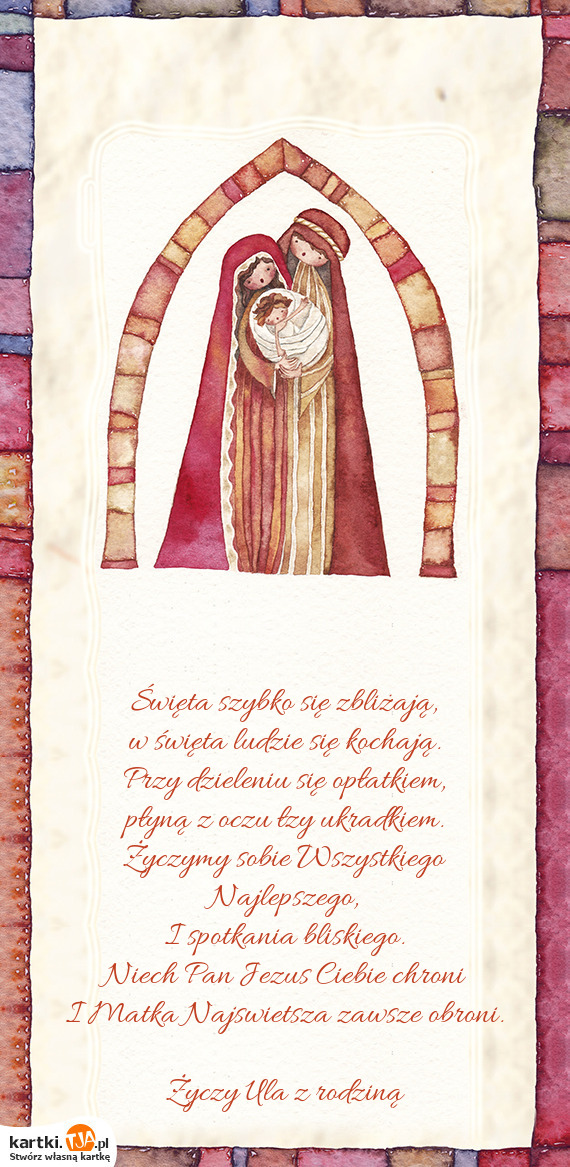 Święta szybko się zbliżają,
w święta ludzie się kochają.
Przy dzieleniu się opłatkiem,
płyną z oczu łzy ukradkiem.
Życzymy sobie Wszystkiego
Najlepszego,
I spotkania bliskiego.
Niech Pan Jezus Ciebie chroni
I Matka Najswietsza zawsze obroni.
Życzy Ula z rodziną
kartki.TJA.pl
Stwórz własną kartkę